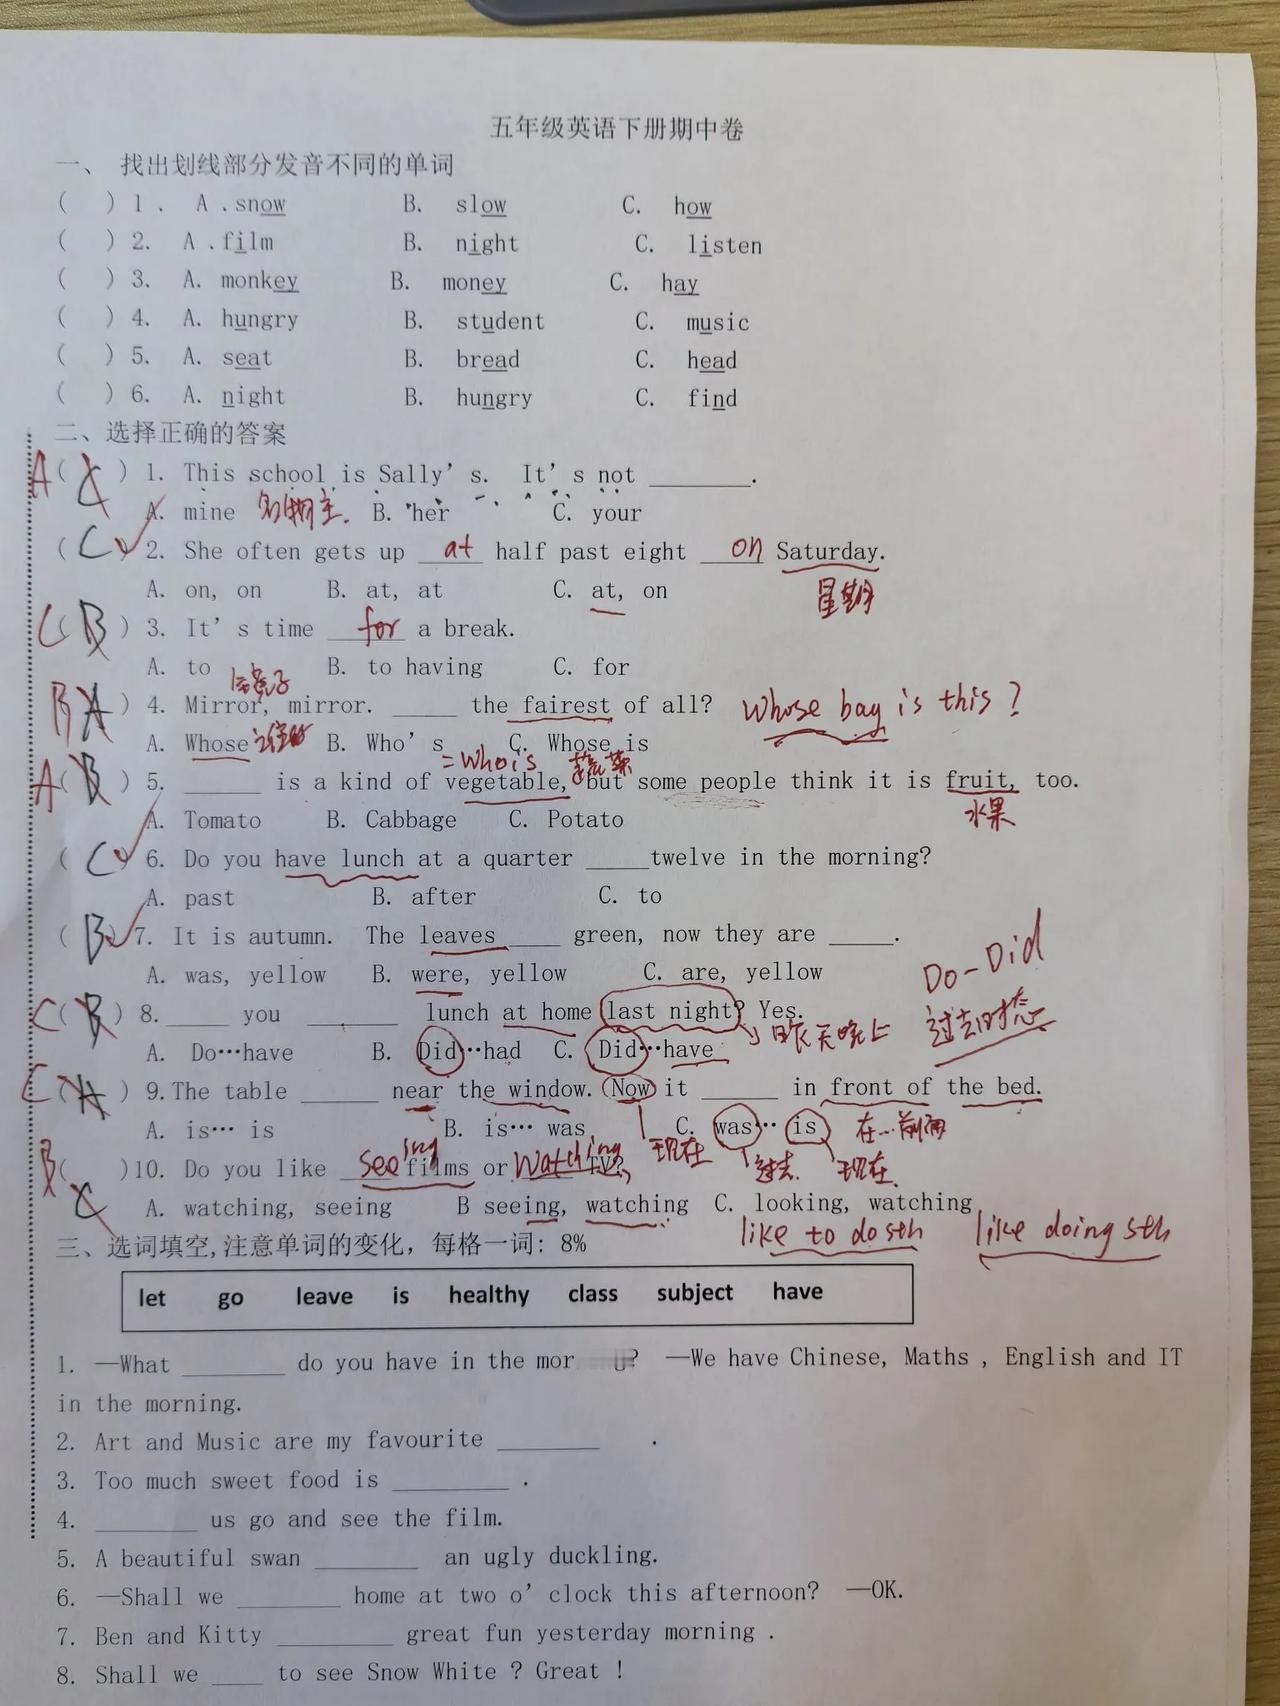 五年级英语下册期中卷
一、 找出划线部分发音不同的单词
(   ) 1 . A .snow B. slow C. how
(   ) 2. A .film B. night C. listen
(   ) 3. A. monkey B. money C. hay
(   ) 4. A. hungry B. student C. music
(   ) 5. A. seat B. bread C. head
(   ) 6. A. night B. hungry C. find
二、选择正确的答案
A ( C ) 1. This school is Sally's. It's not ________.
A. mine 名物主. B. her C. your
( C ) 2. She often gets up at half past eight on Saturday.
A. on, on B. at, at C. at, on 星期
C ( B ) 3. It's time for a break.
A. to B. to having C. for
镜子
B ( A ) 4. Mirror, mirror. _____ the fairest of all? Whose bag is this?
A. Whose B. Who's C. Whose is
=who is 蔬菜
A ( B ) 5. ________ is a kind of vegetable, but some people think it is fruit, too.
A. Tomato B. Cabbage C. Potato 水果
( C ) 6. Do you have lunch at a quarter _____twelve in the morning?
A. past B. after C. to
( B ) 7. It is autumn. The leaves ____ green, now they are _____.
A. was, yellow B. were, yellow C. are, yellow
Do-Did
C ( B ) 8. _____ you _______ lunch at home last night? Yes.
昨天晚上 过去时态
A. Do…have B. Did…had C. Did…have
C ( A ) 9.The table ______ near the window. Now it ______ in front of the bed.
A. is… is B. is… was C. was… is 在…前面
现在 过去 现在
B ( C ) 10. Do you like seeing films or watching TV?
A. watching, seeing B seeing, watching C. looking, watching
like to do sth like doing sth
三、选词填空,注意单词的变化，每格一词: 8%
let go leave is healthy class subject have
1. —What ________ do you have in the mor ? —We have Chinese, Maths , English and IT
in the morning.
2. Art and Music are my favourite ________ .
3. Too much sweet food is _________ .
4. ________ us go and see the film.
5. A beautiful swan ________ an ugly duckling.
6. —Shall we ________ home at two o'clock this afternoon? —OK.
7. Ben and Kitty _________ great fun yesterday morning .
8. Shall we ____ to see Snow White ? Great !